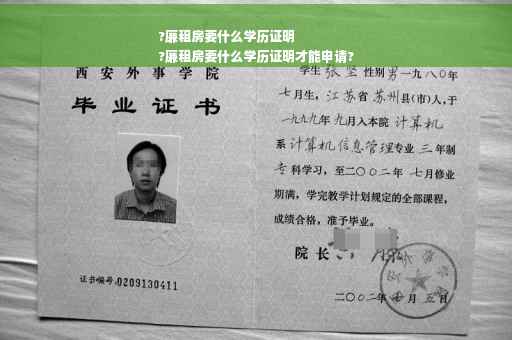 ?廉租房要什么学历证明
?廉租房要什么学历证明才能申请?
西安外事学院
毕业证书
证书编号:0209130411
学生 张坚 性别男一九八0年
七月生,江苏省苏州县(市)人,于
一九九九年九月入本院 计算机
系计算机信息管理专业 三 年制
专科学习,至二〇〇二年 七月修业
期满,学完教学计划规定的全部课程,
成绩合格,准予毕业。
院长
二〇〇二年 月五日